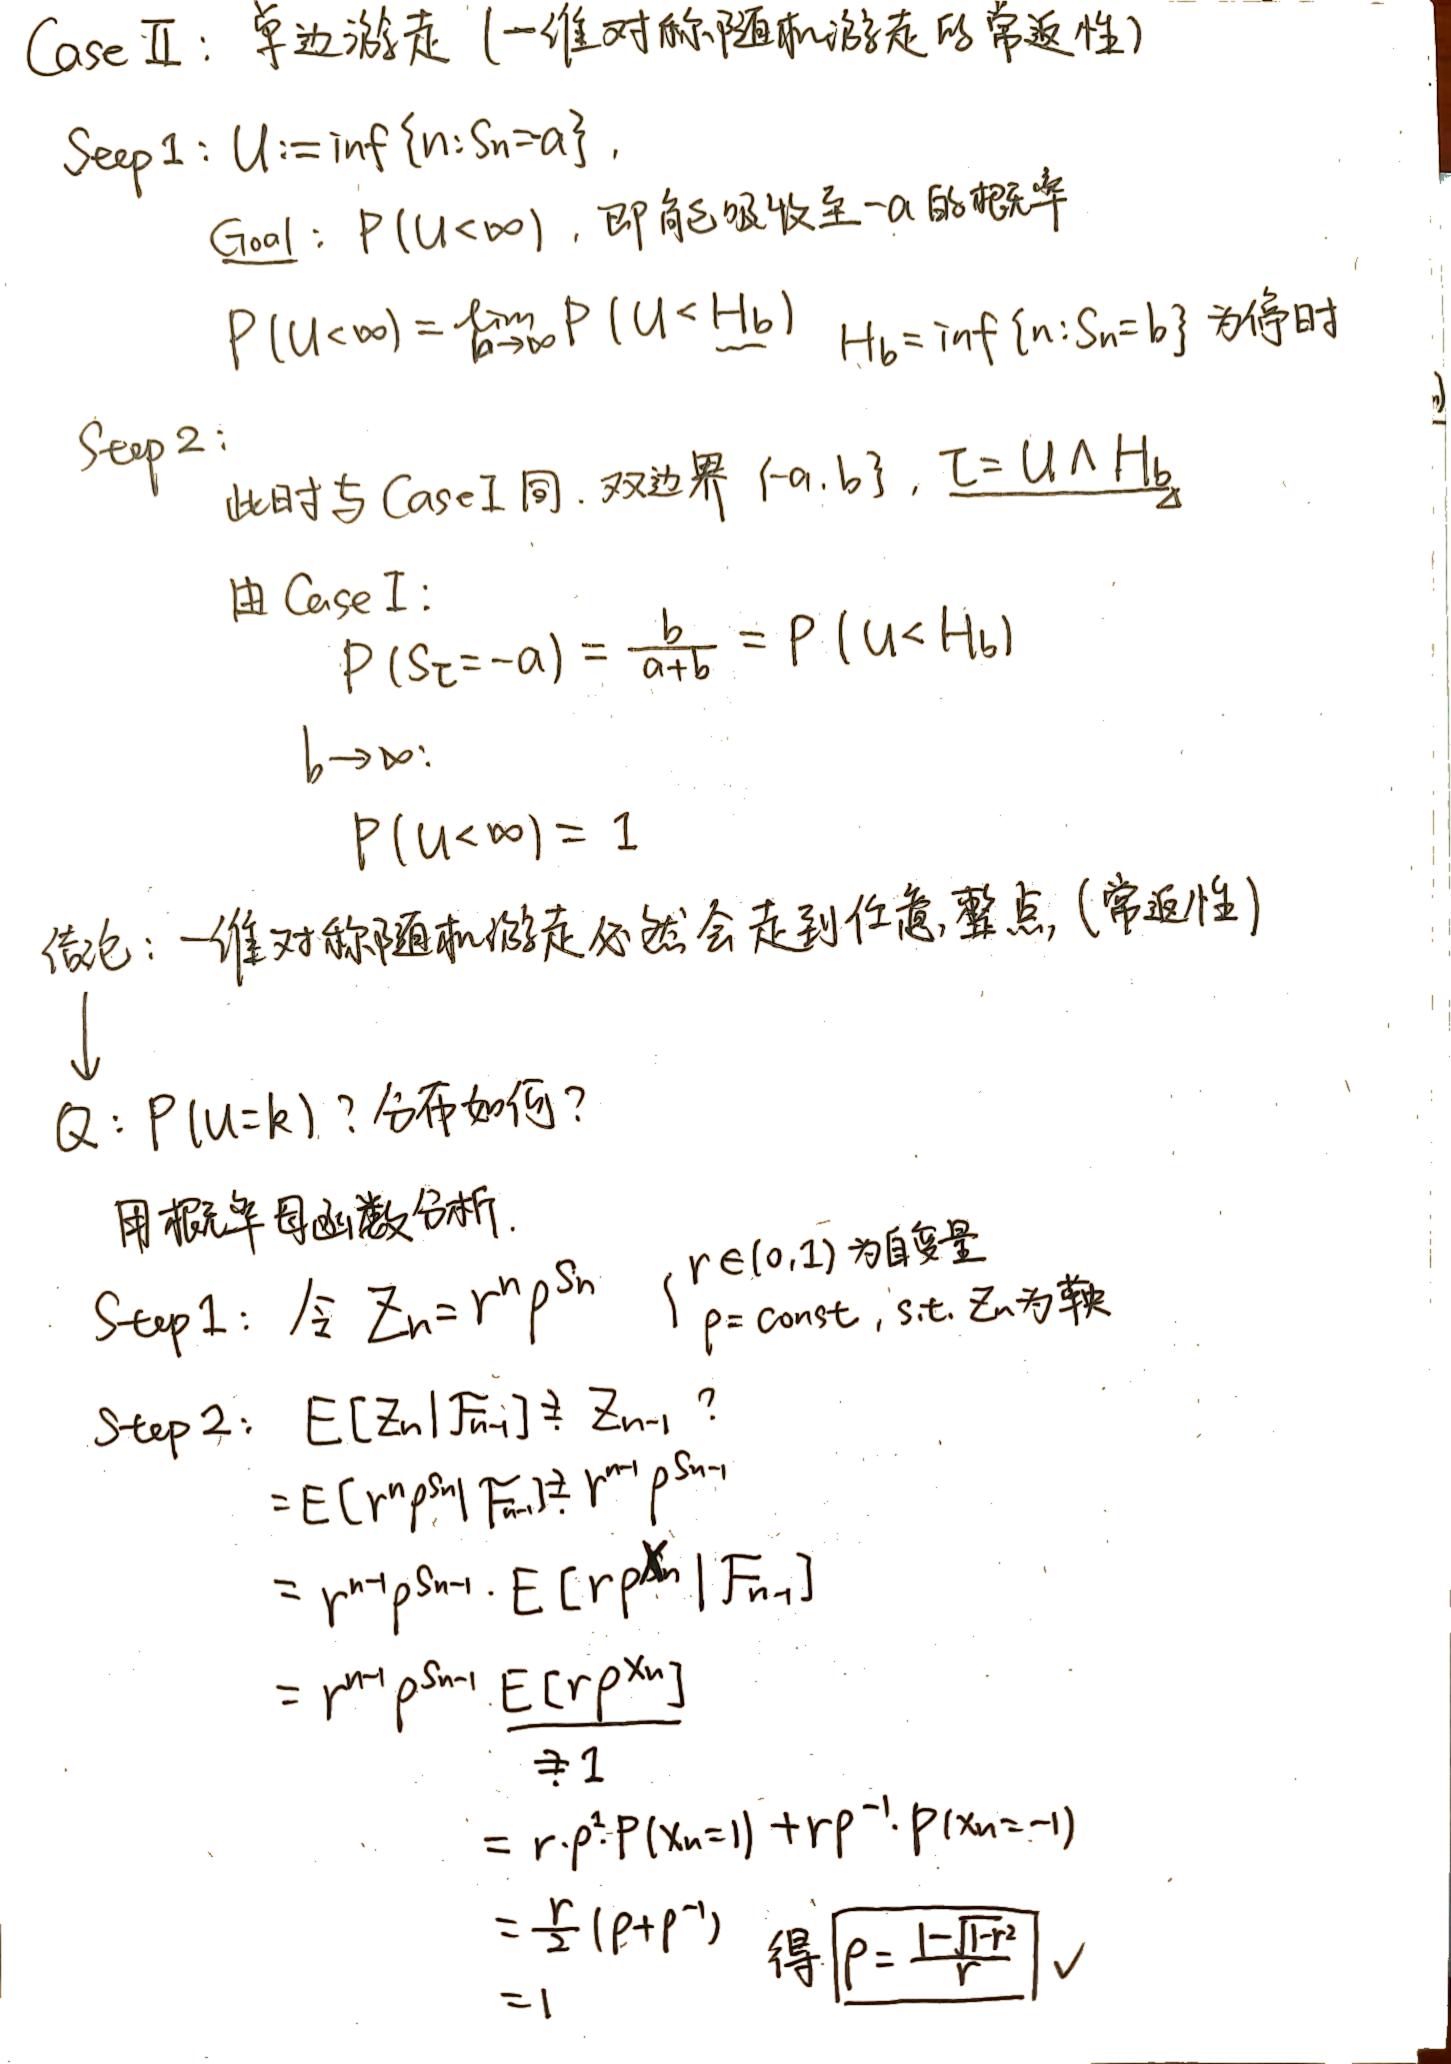 Case Ⅱ: 单边游走 (一维对称随机游走的常返性)
Seep 1: U:=inf{n:Sn=a},
Goal: P(U<∞), 即能吸收至-a的概率
P(U<∞) = lim b→∞ P(U<Hb)   Hb=inf{n:Sn=b} 为停时
Step 2:
此时与 Case I 同. 双边界 {-a.b}, τ=U∧Hb
由 Case I:
P(Sτ=-a) = b/(a+b) = P(U<Hb)
b→∞:
P(U<∞) = 1
结论: 一维对称随机游走必然会走到任意整点, (常返性)
↓
Q: P(U=k)? 分布如何?
用概率母函数分析.
Step 1: 令 Zn=r^n ρ^Sn { r∈(0,1) 为自变量
ρ= const, s.t. Zn为鞅
Step 2: E[Zn|Fn-1] ≟ Zn-1 ?
=E[r^n ρ^Sn|Fn-1] ≟ r^n-1 ρ^Sn-1
= r^n-1 ρ^Sn-1 · E[rρ^Xn|Fn-1]
= r^n-1 ρ^Sn-1 · E[rρ^Xn]
≟ 1
= r·ρ^1·P(Xn=1) + rρ^-1·P(Xn=-1)
= r/2 (ρ+ρ^-1) 得 ρ= (1-√(1-r²))/r ✓
=1